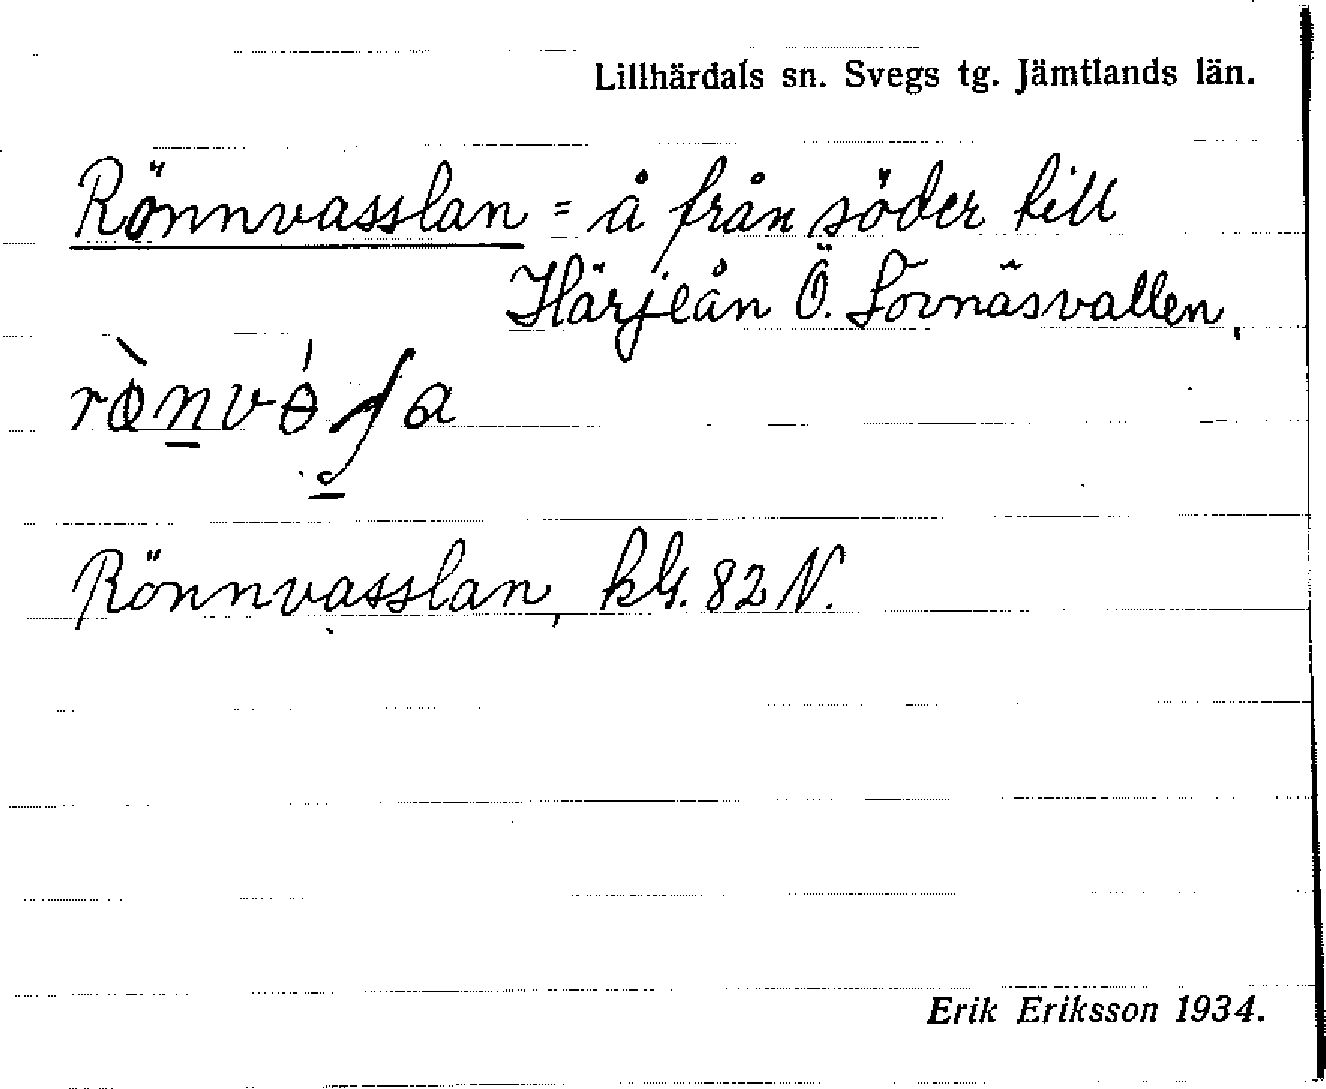 Lillhärdals sn. Svegs tg. Jämtlands län.
Rönnvasslan = å från söder till
Härjeån Ö. Lövnäsvallen.
Rönnvasslan, kbl. 82 N.
Erik Eriksson 1934.